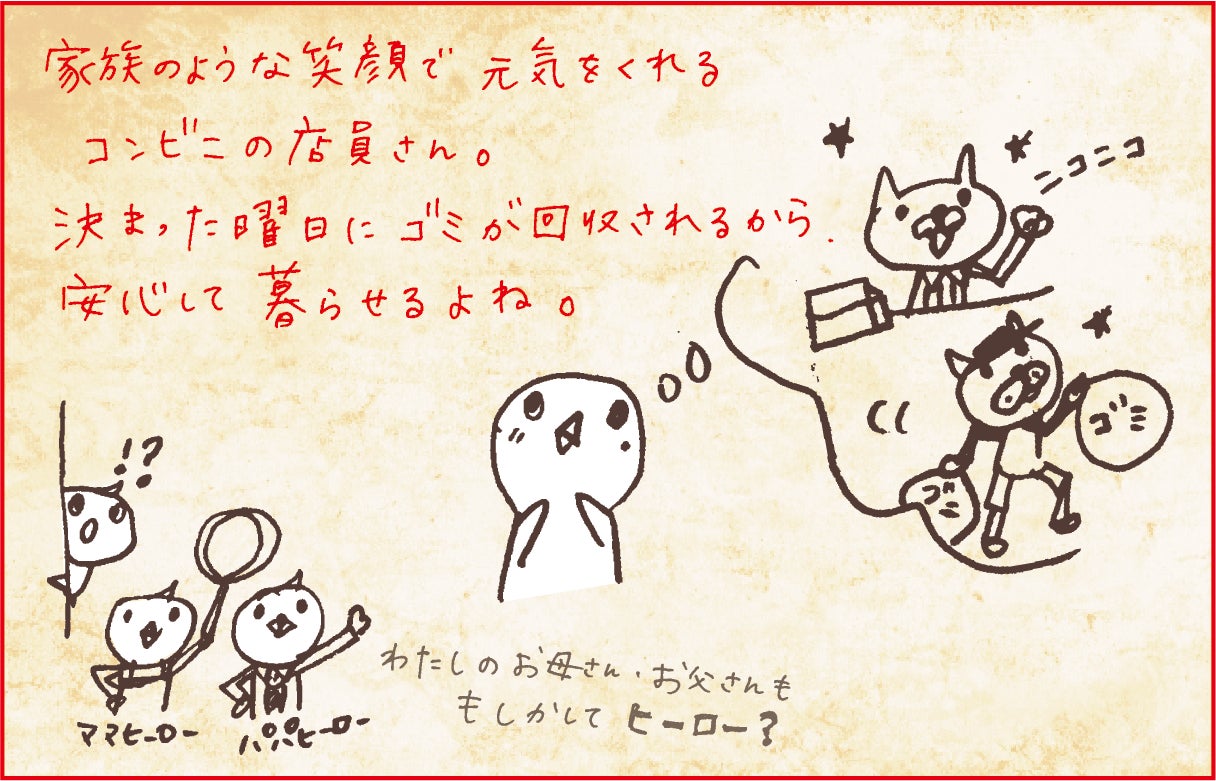 家族のような笑顔で 元気をくれる
コンビニの店員さん。
決まった曜日に ゴミが回収されるから、
安心して 暮らせるよね。
ニコニコ
ゴミ
ゴミ
!?
わたしのお母さん・お父さんも
もしかして ヒーロー?
ママヒーロー
パパヒーロー